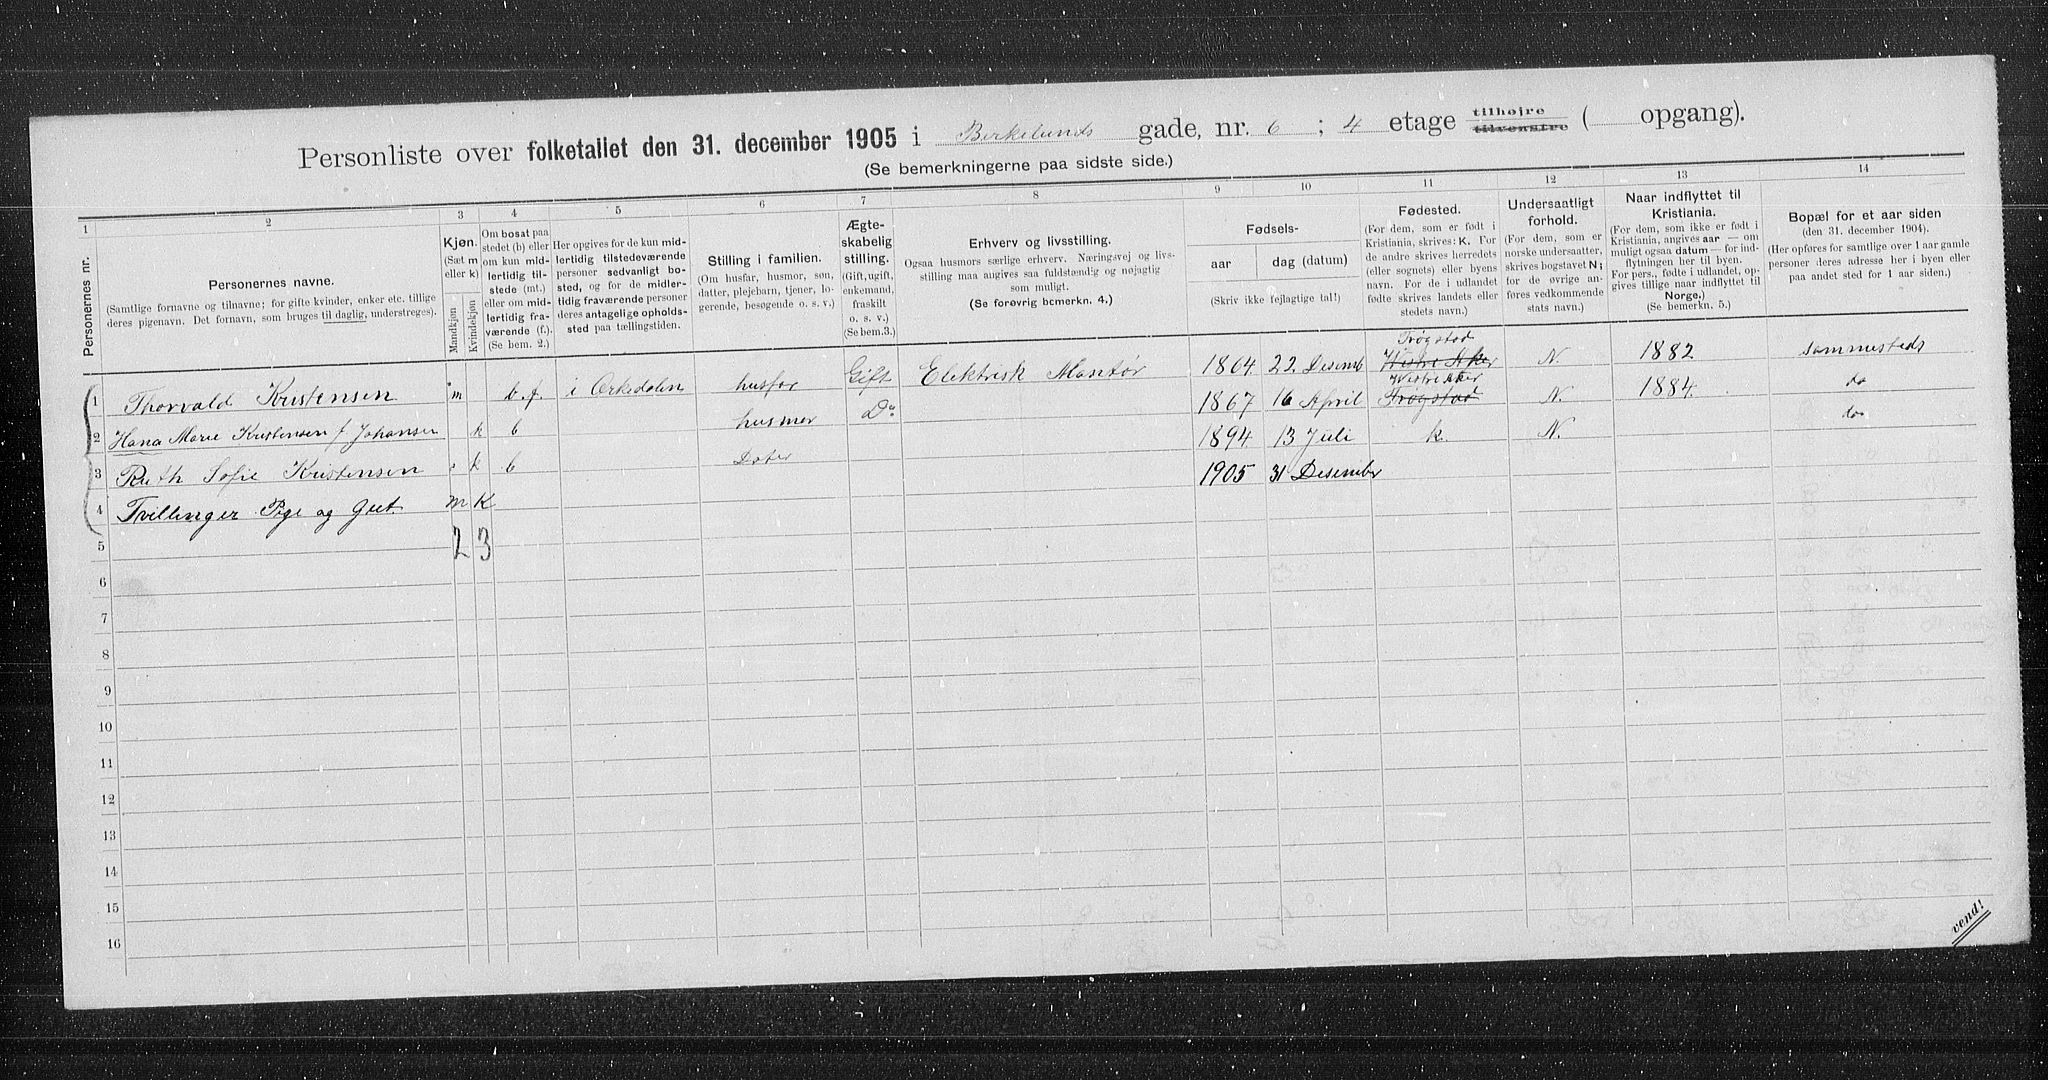 Personliste over folketallet den 31. december 1905 i Birkelunds gade, nr. 6 ; 4 etage tilhøjre tilvenstre ( opgang).
(Se bemerkningerne paa sidste side.)
1 2 3 4 5 6 7 8 9 10 11 12 13 14
Personernes nr.
Personernes navne.
(Samtlige fornavne og tilnavne; for gifte kvinder, enker etc. tillige
deres pigenavn. Det fornavn, som bruges til daglig, understreges).
Kjøn.
(Sæt m
eller k)
Mandkjøn
Kvindekjøn
Om bosat paa
stedet (b) eller
om kun mid-
lertidig til-
stede (mt.)
eller om mid-
lertidig fra-
værende (f.).
(Se bem. 2.)
Her opgives for de kun mid-
lertidig tilstedeværende
personer sedvanlig bo-
sted, og for de midler-
tidig fraværende personer
deres antagelige opholds-
sted paa tællingstiden.
Stilling i familien.
(Om husfar, husmor, søn,
datter, plejebarn, tjener, lo-
gerende, besøgende o. s. v.)
Ægte-
skabelig
stilling.
(Gift, ugift,
enkemand,
fraskilt
o. s. v.)
(Se bem. 3.)
Erhverv og livsstilling.
Ogsaa husmors særlige erhverv. Næringsvej og livs-
stilling maa angives saa fuldstændig og nøjagtig
som muligt.
(Se forøvrig bemerkn. 4.)
Fødsels-
aar dag (datum)
(Skriv ikke fejlagtige tal!)
Fødested.
(For dem, som er født i
Kristiania, skrives: K. For
de andre skrives herredets
(eller sognets) eller byens
navn. For de i udlandet
fødte skrives landets eller
stedets navn.)
Undersaatligt
forhold.
(For dem, som er
norske undersaatter,
skrives bogstavet N;
for de øvrige an-
føres vedkommende
stats navn.)
Naar indflyttet til
Kristiania.
(For dem, som ikke er født i
Kristiania, angives aar — om
muligt ogsaa datum — for ind-
flytningen her til byen.
For pers., fødte i udlandet, op-
gives tillige naar indflyttet til
Norge.)
(Se bemerkn. 5.)
Bopæl for et aar siden
(den 31. december 1904).
(Her opføres for samtlige over 1 aar gamle
personer deres adresse her i byen eller
paa andet sted for 1 aar siden.)
1 Thorvald Kristensen m b. f. i Orkedalen husfar Gift Elektrisk Montør 1864 22 Desemb Trøgstad Vestre Aker N. 1882 sammesteds
2 Hana Marie Kristensen f Johansen k b husmor Do 1867 16 April Vestre Aker Trøgstad N. 1884. do
3 Ruth Sofie Kristensen k b Dater 1894 13 Juli k. N. do
4 Tvillinger Pige og Gut. m K 1905 31 Desember
5 2 3
6
7
8
9
10
11
12
13
14
15
16
vend!